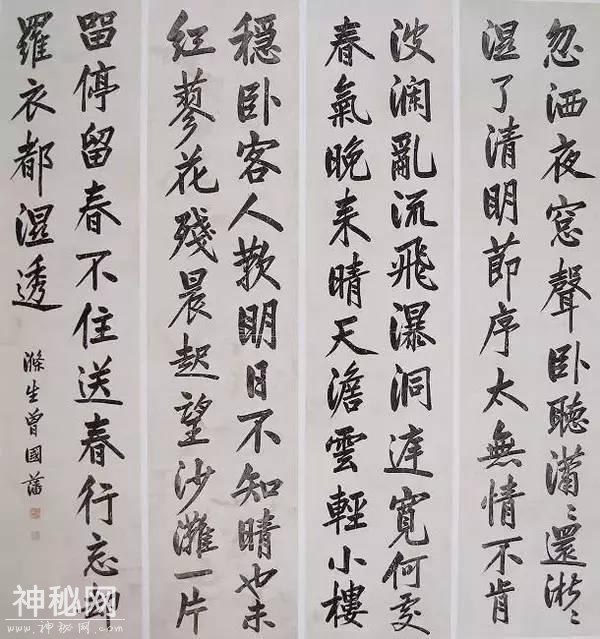 忽洒夜窓聲卧聽瀟〻還淅〻
湿了清明莭序太無情不肯
波澜亂流飛瀑洞庭寬何處
春氣晚来晴天澹雲輕小樓
穏卧客人歎明日不知晴也未
红蓼花殘晨起望沙灘一片
留停留春不住送春行忘却
羅衣都湿透
滌生曾國藩
神秘网